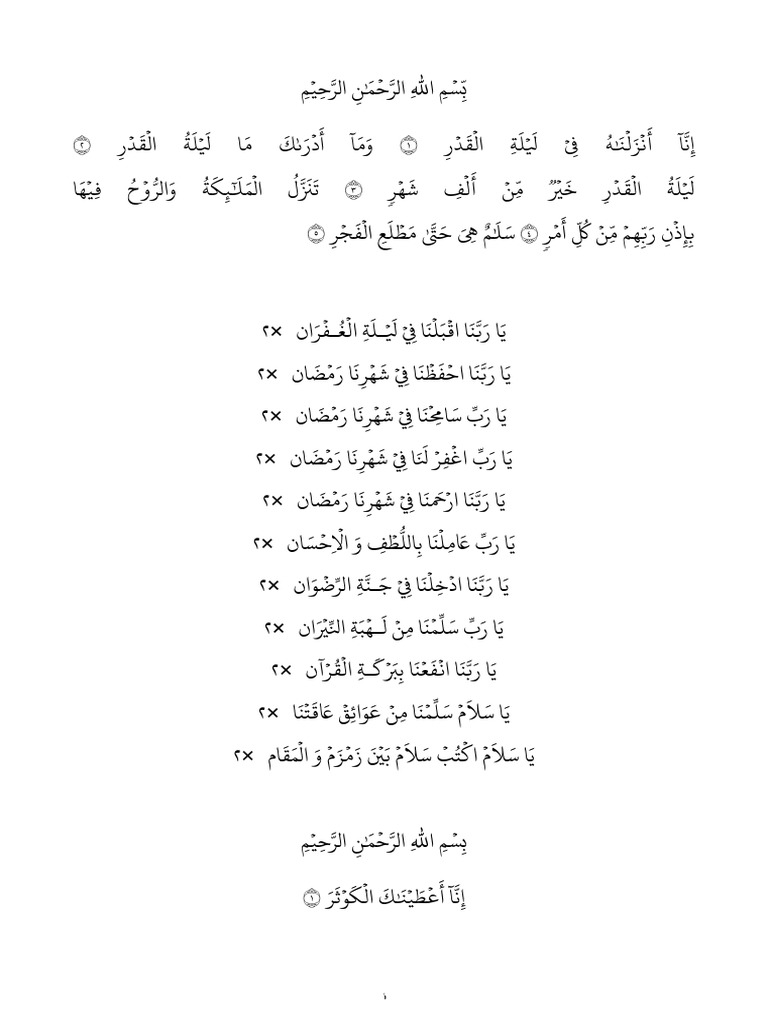 بِّسْمِ اللهِ الرَّحْمَٰنِ الرَّحِيْمِ
إِنَّآ أَنْزَلْنَٰهُ فِىْ لَيْلَةِ الْقَدْرِ ۝١ وَمَآ أَدْرَىٰكَ مَا لَيْلَةُ الْقَدْرِ ۝٢
لَيْلَةُ الْقَدْرِ خَيْرٌ مِّنْ أَلْفِ شَهْرٍ ۝٣ تَنَزَّلُ الْمَلَٰٓئِكَةُ وَالرُّوْحُ فِيْهَا
بِإِذْنِ رَبِّهِمْ مِّنْ كُلِّ أَمْرٍ ۝٤ سَلَٰمٌ هِىَ حَتَّىٰ مَطْلَعِ الْفَجْرِ ۝٥
يَا رَبَّنَا اقْبَلْنَا فِيْ لَيْـلَةِ الْغُـفْرَان ×٢
يَا رَبَّنَا احْفَظْنَا فِيْ شَهْرِنَا رَمْضَان ×٢
يَا رَبِّ سَامِحْنَا فِيْ شَهْرِنَا رَمْضَان ×٢
يَا رَبِّ اغْفِرْ لَنَا فِيْ شَهْرِنَا رَمْضَان ×٢
يَا رَبَّنَا ارْحَمْنَا فِيْ شَهْرِنَا رَمْضَان ×٢
يَا رَبِّ عَامِلْنَا بِاللُّطْفِ وَ الْاِحْسَان ×٢
يَا رَبَّنَا ادْخِلْنَا فِيْ جَـنَّةِ الرِّضْوَان ×٢
يَا رَبِّ سَلِّمْنَا مِنْ لَـهْبَةِ النِّيْرَان ×٢
يَا رَبَّنَا انْفَعْنَا بِبَرْكَـةِ الْقُرْآن ×٢
يَا سَلاَمْ سَلِّمْنَا مِنْ عَوَائِقْ عَاقَتْنَا ×٢
يَا سَلاَمْ اكْتُبْ سَلاَمْ بَيْنَ زَمْزَمْ وَ الْمَقَام ×٢
بِسْمِ اللهِ الرَّحْمَٰنِ الرَّحِيْمِ
إِنَّآ أَعْطَيْنَٰكَ الْكَوْثَرَ ۝١
١